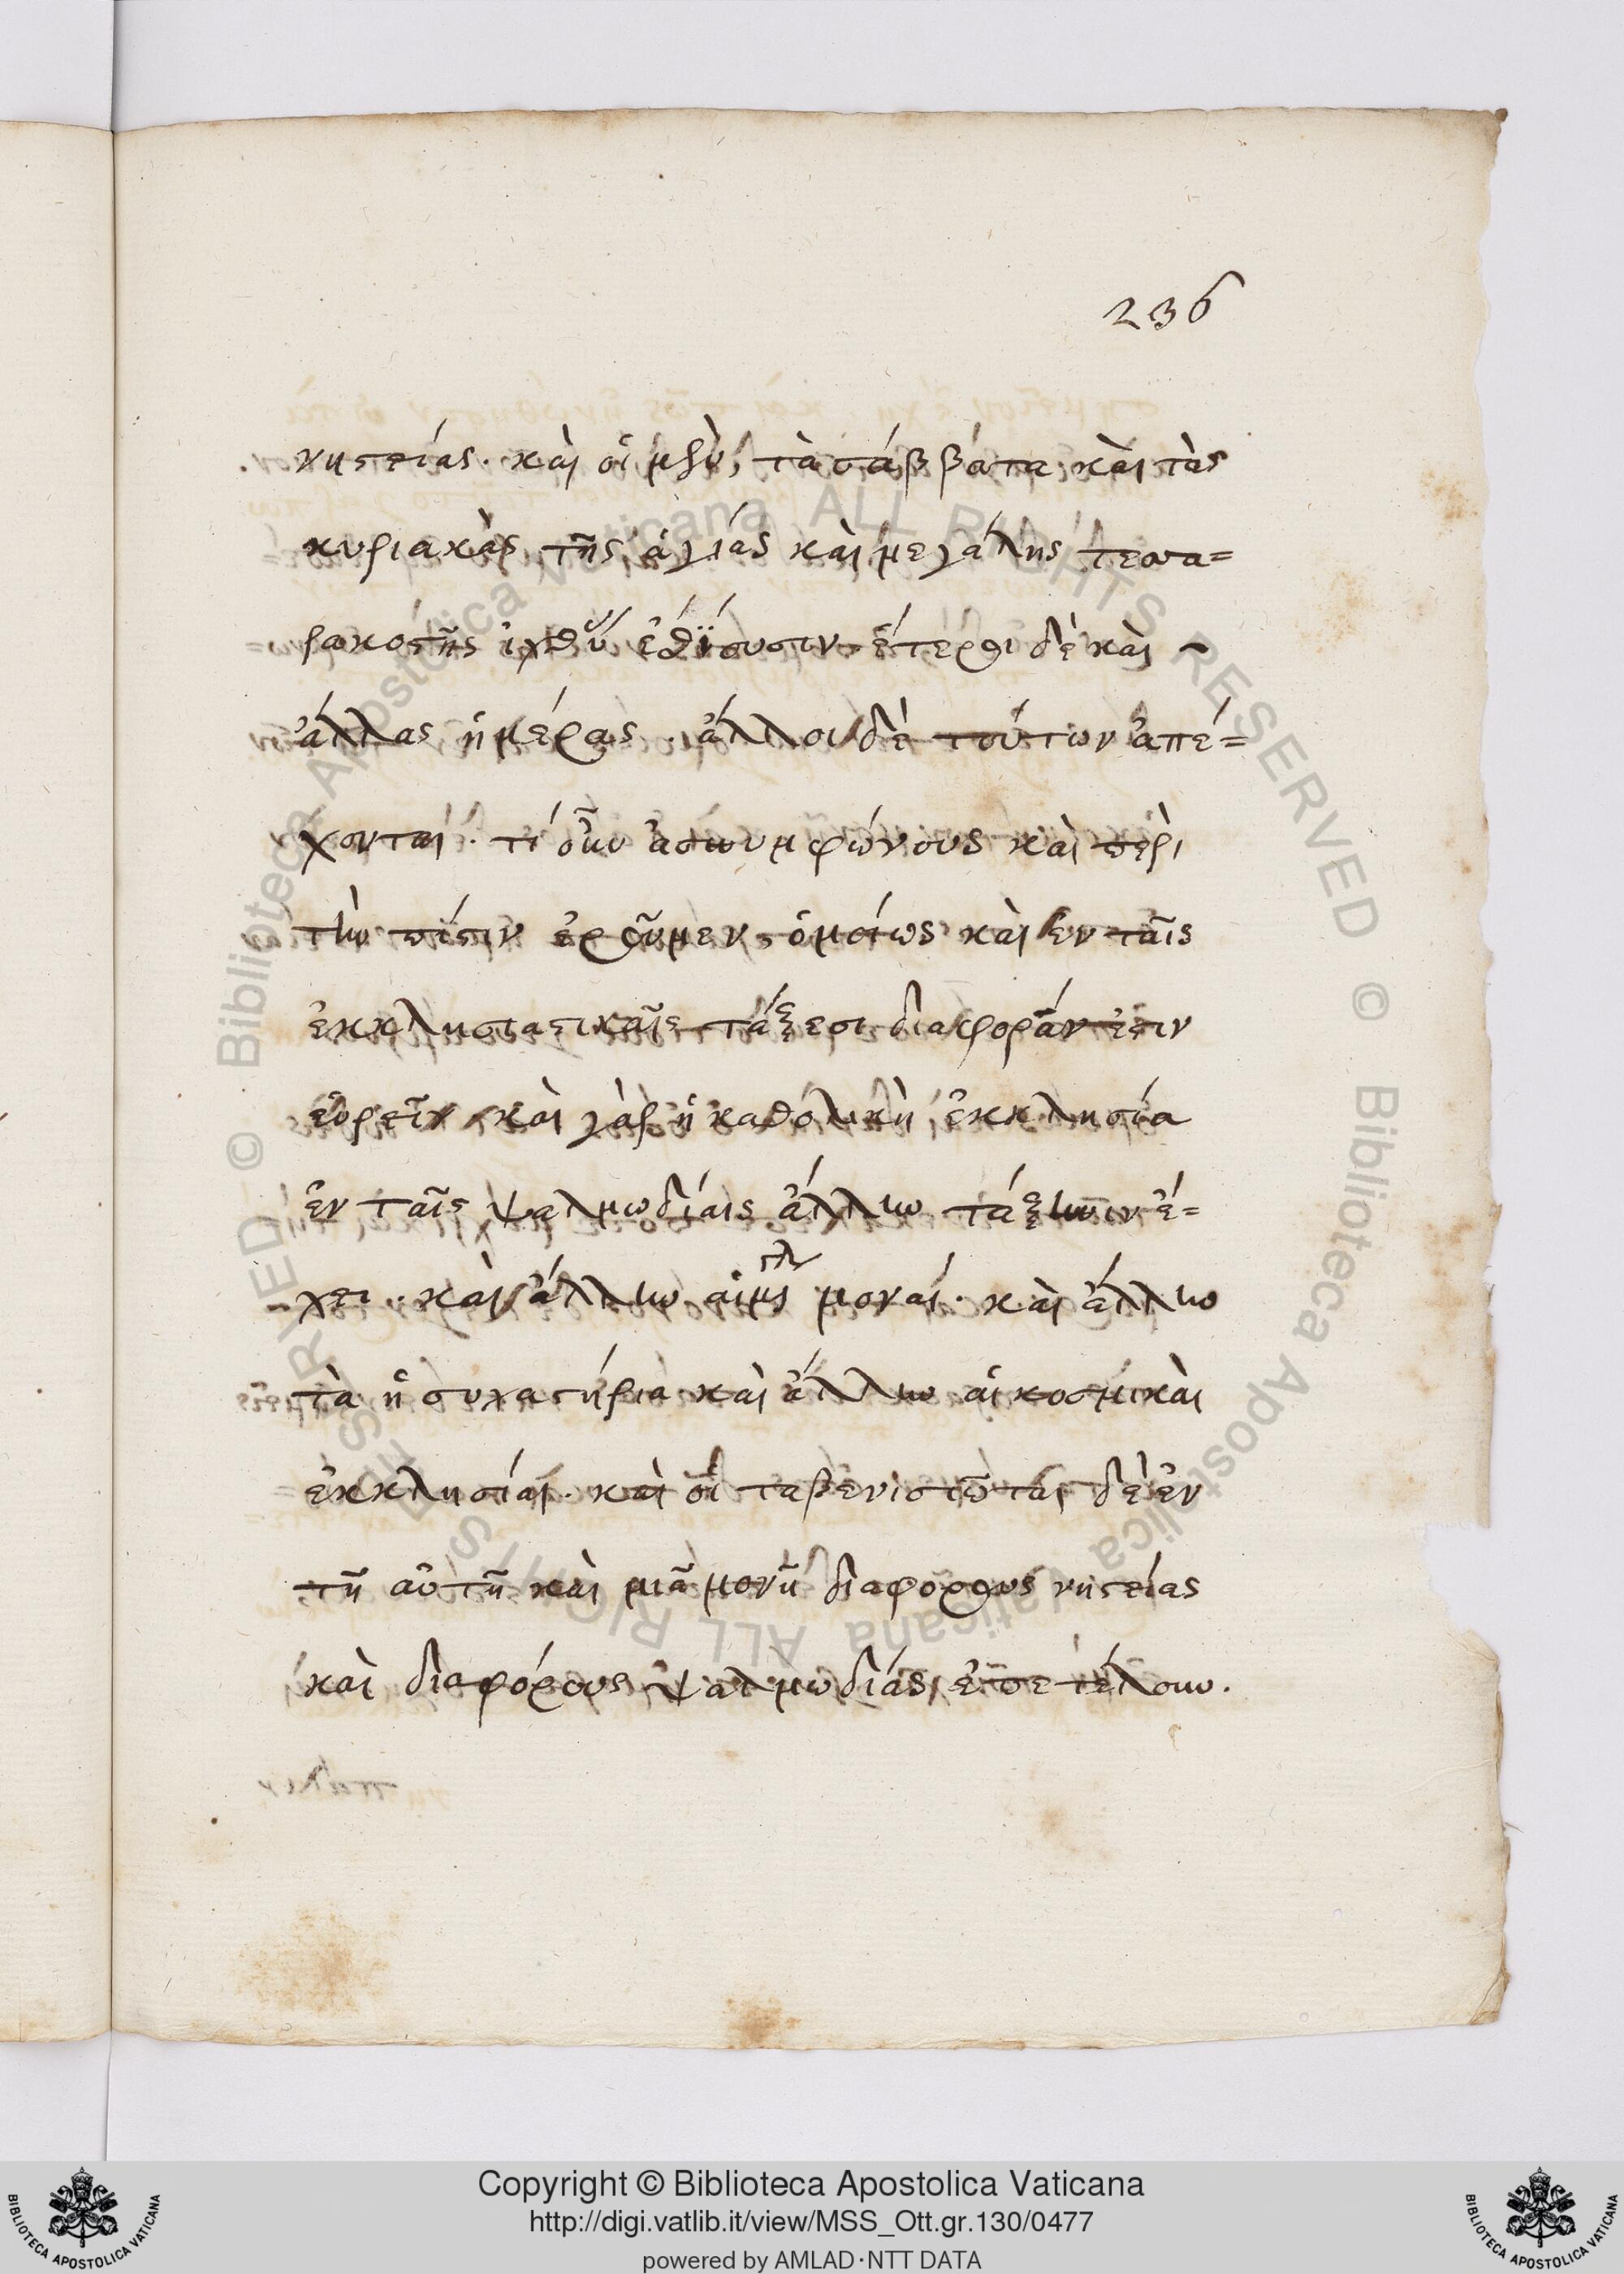 236
νηστείας. καὶ οἱ μὲν, τὰ σάββάτα καὶ τὰς
κυριακὰς τῆς ἁγίας καὶ μεγάλης τεσσα=
ρακοστῆς ἰχθὺν ἐσθΐουσιν ἑτέροι δὲ καὶ
ἄλλας ἡμέρας. ἄλλοι δὲ τούτων ἀπέ=
χονται. τί οὖν ἀσυμφώνους καὶ περὶ
τὴν πίστιν ἐροῦμεν, ὁμοίως καὶ ἐν ταῖς
ἐκκλησιαστικαῖς τάξεσι διαφοράν ἐστιν
εὑρεῖν καὶ γὰρ ἡ καθολικὴ ἐκκλησία
ἐν ταῖς ψαλμωδίαις ἄλλην τάξιν ἔ=
χει. καὶ ἄλλην αἱ μοναί. καὶ ἄλλην
τὰ ἡσυχαστήρια καὶ ἄλλην αἱ κοσμικαὶ
ἐκκλησίαι. καὶ οἱ ταβενισιῶται δὲ ἐν
τῆ αὐτῆ καὶ μιᾶ μονῆ διαφόρους νηστείας
καὶ διαφόρους ψαλμωδίας ἐπετέλουν.
Copyright © Biblioteca Apostolica Vaticana
http://digi.vatlib.it/view/MSS_Ott.gr.130/0477
powered by AMLAD·NTT DATA
BIBLIOTECA APOSTOLICA VATICANA
BIBLIOTECA APOSTOLICA VATICANA
© Biblioteca Apostolica Vaticana ALL RIGHTS RESERVED © Biblioteca Apostolica Vaticana ALL RIGHTS RESERVED